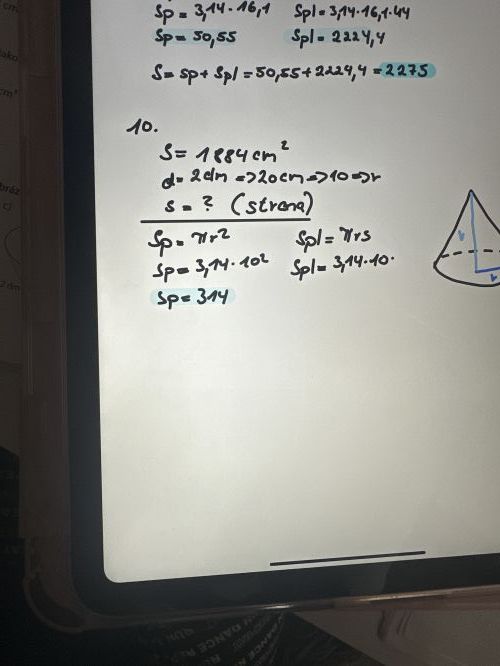 Sp = 3,14 · 16,1 Spl = 3,14 · 16,1 · 44
Sp = 50,55 Spl = 2224,4
S = Sp + Spl = 50,55 + 2224,4 = 2275
10.
S = 1884 cm²
d = 2dm => 20cm => 10 => r
s = ? (strana)
Sp = πr² Spl = πrs
Sp = 3,14 · 10² Spl = 3,14 · 10 ·
Sp = 314
v
r